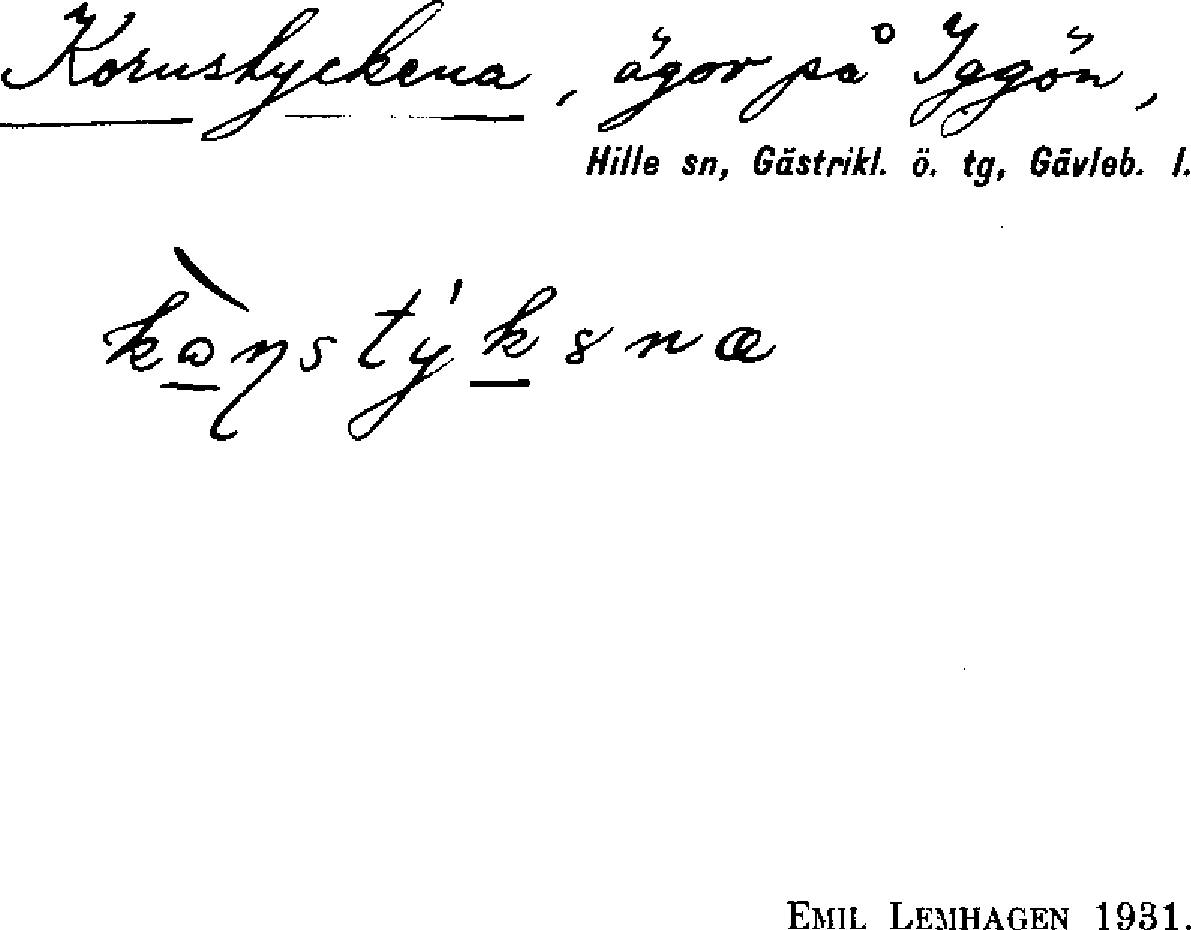 Kornstyckena, ägor på Iggön,
Hille sn, Gästrikl. ö. tg, Gävleb. l.
EMIL LEMHAGEN 1931.